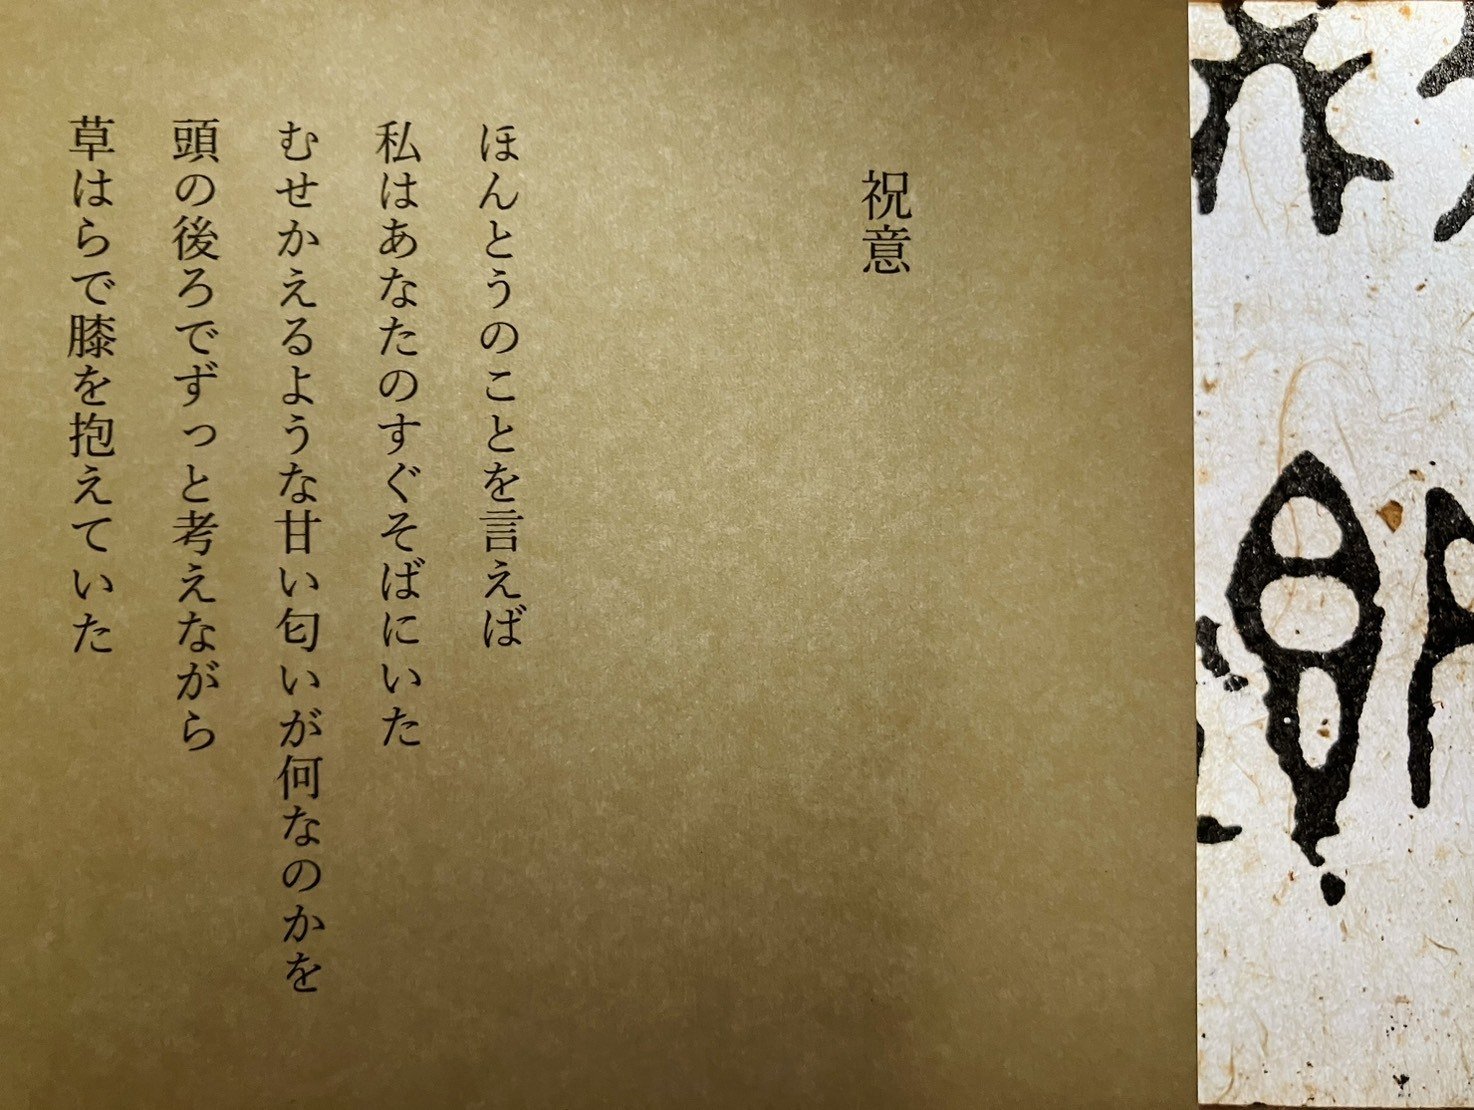 祝意
ほんとうのことを言えば
私はあなたのすぐそばにいた
むせかえるような甘い匂いが何なのかを
頭の後ろでずっと考えながら
草はらで膝を抱えていた